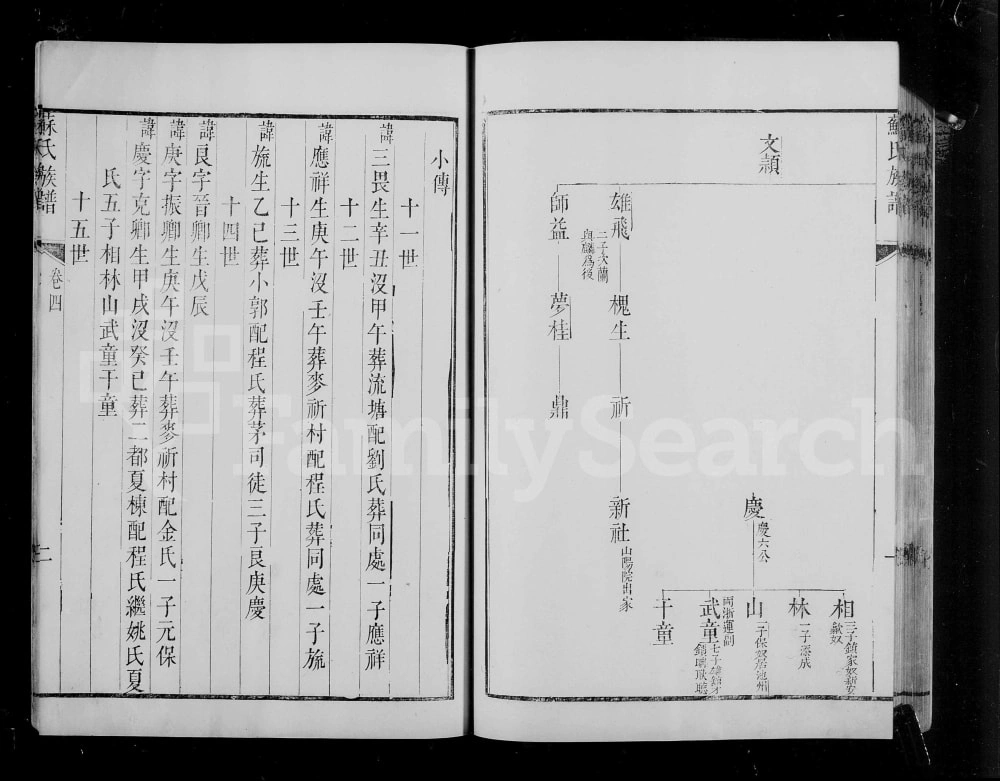 蘇氏族譜
文顈
雄飛
二子次蘭
與麟爲後
槐生
祈
新社
山陽院出家
師益
夢桂
鼎
慶
慶六公
相
三子鎮家奴新安
歙奴
林
一子添成
山
二子保奴居池州
武童
兩浙運副
干童
小傳
十一世
諱三畏生辛丑沒甲午葬流塘配劉氏葬同處一子應祥
十二世
諱應祥生庚午沒壬午葬麥祈村配程氏葬同處一子旈
十三世
諱旈生乙巳葬小郭配程氏葬茅司徒三子良庚慶
十四世
諱良字晉卿生戊辰
諱庚字振卿生庚午沒壬午葬麥祈村配金氏一子元保
諱慶字克卿生甲戌沒癸巳葬二都夏棟配程氏繼姚氏夏
氏五子相林山武童干童
十五世
蘇氏族譜
卷四
二
FamilySearch